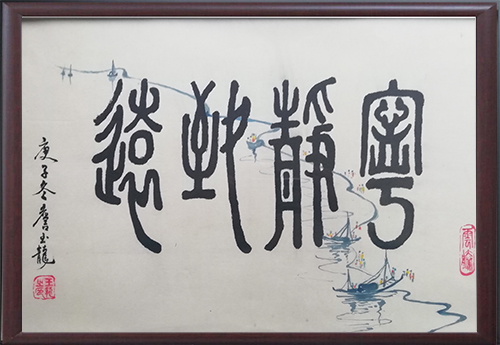 寧靜致遠
庚子冬詹玉龍